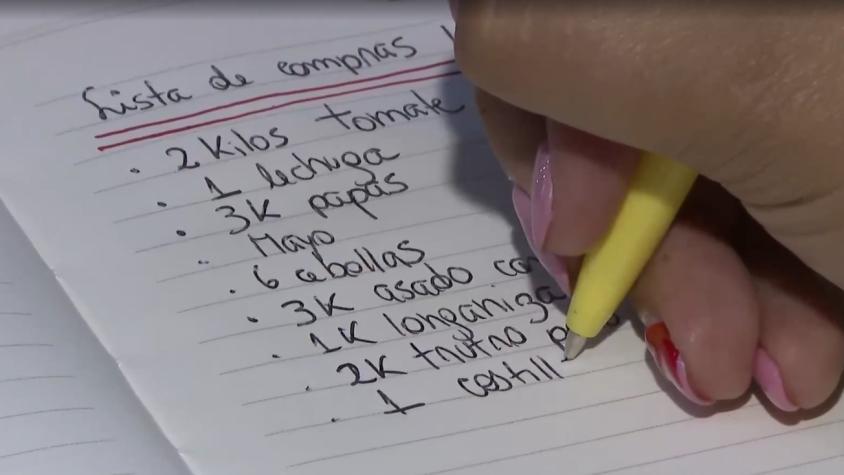 Lista de compras
· 2 Kilos tomate
· 1 lechuga
· 3K papas
· Mayo
· 6 cebollas
· 3K asado
· 1K longaniza
· 2K trutro
· 1 costill